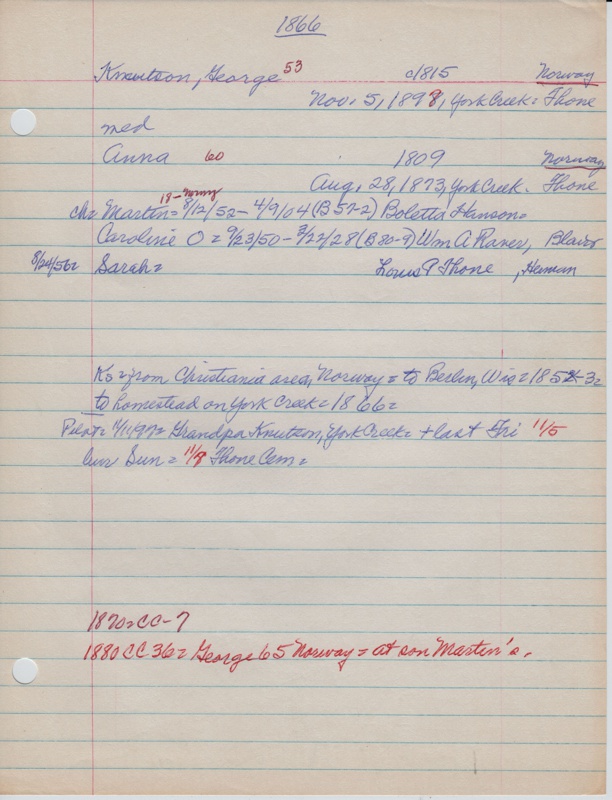 1866
Knutson, George 53 c1815 Norway
Nov. 5, 1898, York Creek = Thone
med
Anna 60 1809 Norway
Aug. 28, 1873, York Creek. Thone
18 - Norway
ch = Martin = 8/12/52 - 4/9/04 (B 57-2) Boletta Hanson =
Caroline O = 9/23/50 - 3/22/28 (B 80-9) Wm A Raner, Blair
8/24/56 = Sarah = Louis P Thone, Herman
Ks = from Christiania area, Norway = to Berlin, Wis = 1852-3 =
to homestead on York Creek = 1866 =
11/11/97 = Grandpa Knutson, York Creek = + last Fri 11/5
bur Sun = 11/7 Thone Cem =
1870 = CC-7
1880 CC 36 = George 65 Norway = at son Martin's.